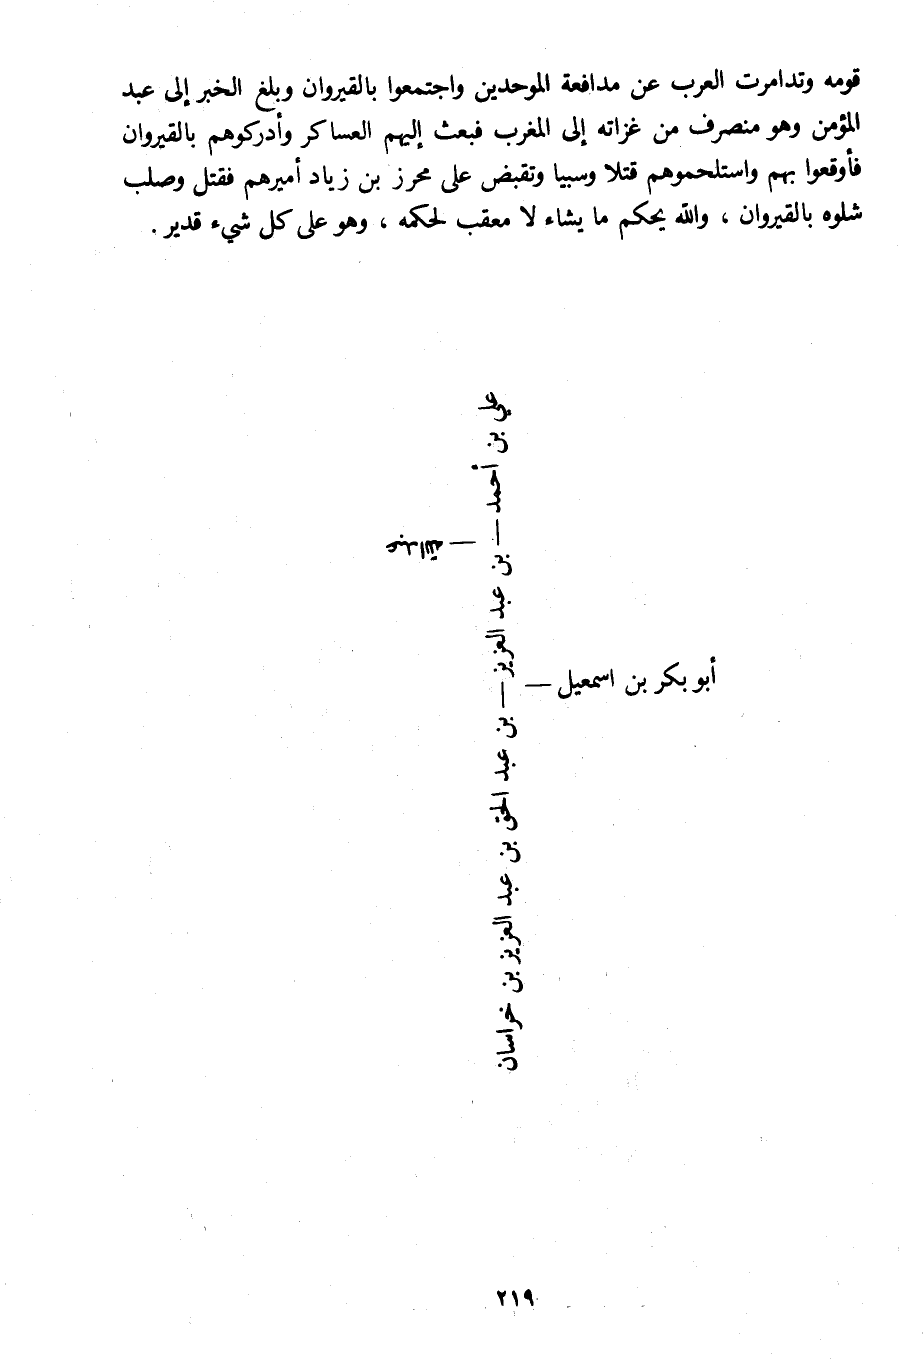 قومه وتدامرت العرب عن مدافعة الموحدين واجتمعوا بالقيروان وبلغ الخبر إلى عبد
المؤمن وهو منصرف من غزاته إلى المغرب فبعث إليهم العساكر وأدركوهم بالقيروان
فأوقعوا بهم واستلحموهم قتلا وسبيا وتقبض على محرز بن زياد أميرهم فقتل وصلب
شلوه بالقيروان ، والله يحكم ما يشاء لا معقب لحكمه ، وهو على كل شيء قدير .
علي بن أحمد — بن عبد العزيز — بن عبد الحق بن عبد العزيز بن خراسان
عبدالله —
أبو بكر بن اسمعيل —
٢١٩